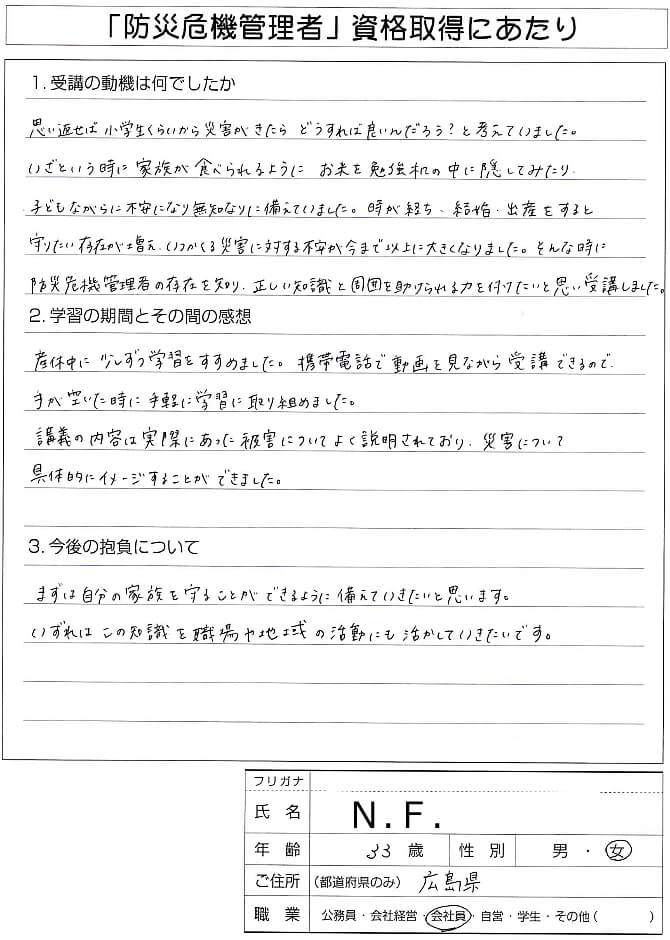 「防災危機管理者」資格取得にあたり
1.受講の動機は何でしたか
思い返せば小学生くらいから災害がきたら どうすれば良いんだろう?と考えていました。
いざという時に家族が食べられるように お米を勉強机の中に隠してみたり、
子どもながらに不安になり無知なりに備えていました。時が経ち、結婚・出産をすると
守りたい存在が増え、いつかくる災害に対する不安が今まで以上に大きくなりました。そんな時に
防災危機管理者の存在を知り、正しい知識と周囲を助けられる力を付けたいと思い受講しました。
2.学習の期間とその間の感想
産休中に少しずつ学習をすすめました。携帯電話で動画を見ながら受講できるので、
手が空いた時に手軽に学習に取り組めました。
講義の内容は実際にあった被害についてよく説明されており、災害について
具体的にイメージすることができました。
3.今後の抱負について
まずは自分の家族を守ることができるように備えていきたいと思います。
いずれはこの知識を職場や地域の活動にも活かしていきたいです。
フリガナ
氏 名 N.F.
年 齢 33 歳 性 別 男・女
ご住所 (都道府県のみ) 広島県
職 業 公務員・会社経営・会社員・自営・学生・その他( )